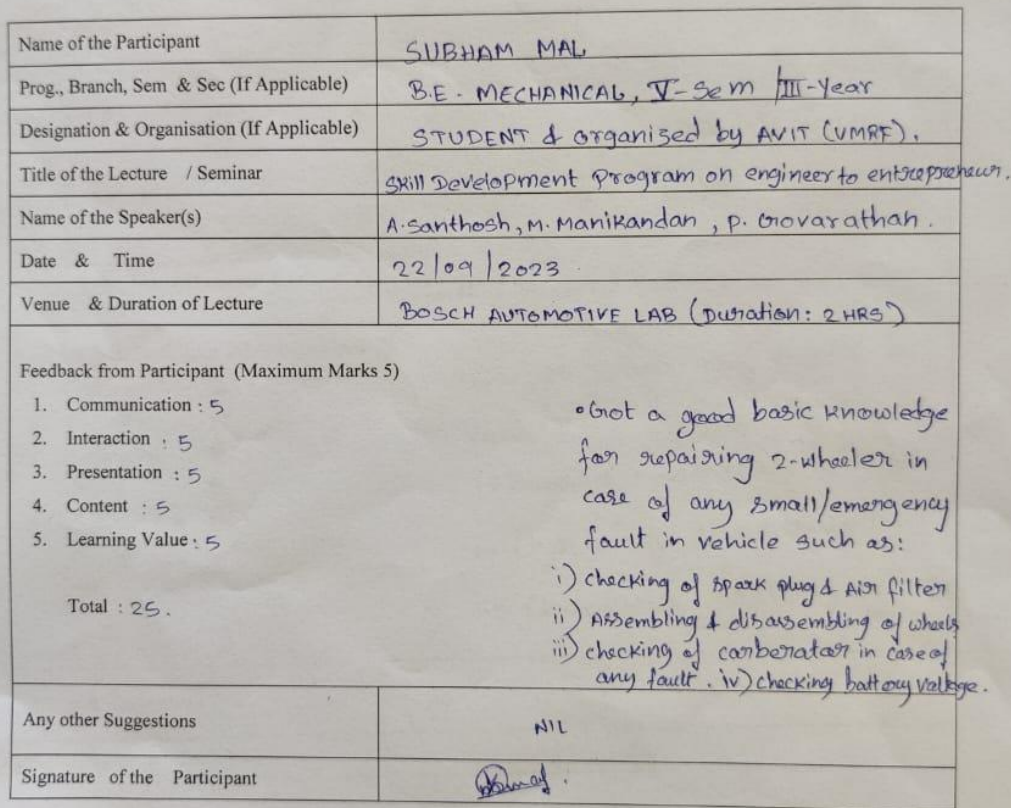 Name of the Participant SUBHAM MAL
Prog., Branch, Sem & Sec (If Applicable) B.E - MECHANICAL, V-Sem /III-Year
Designation & Organisation (If Applicable) STUDENT & organised by AVIT (VMRF).
Title of the Lecture / Seminar Skill Development Program on engineer to entrepreneur.
Name of the Speaker(s) A.Santhosh, M. Manikandan, P. Govarathan.
Date & Time 22/09/2023
Venue & Duration of Lecture BOSCH AUTOMOTIVE LAB (Duration: 2 HRS)
Feedback from Participant (Maximum Marks 5)
1. Communication : 5
2. Interaction : 5
3. Presentation : 5
4. Content : 5
5. Learning Value : 5
Total : 25.
• Got a good basic knowledge
for repairing 2-wheeler in
case of any small/emergency
fault in vehicle such as:
i) checking of spark plug & Air filter
ii) Assembling & disassembling of wheels
iii) checking of carberatar in case of
any fault. iv) checking battery valtage.
Any other Suggestions NIL
Signature of the Participant